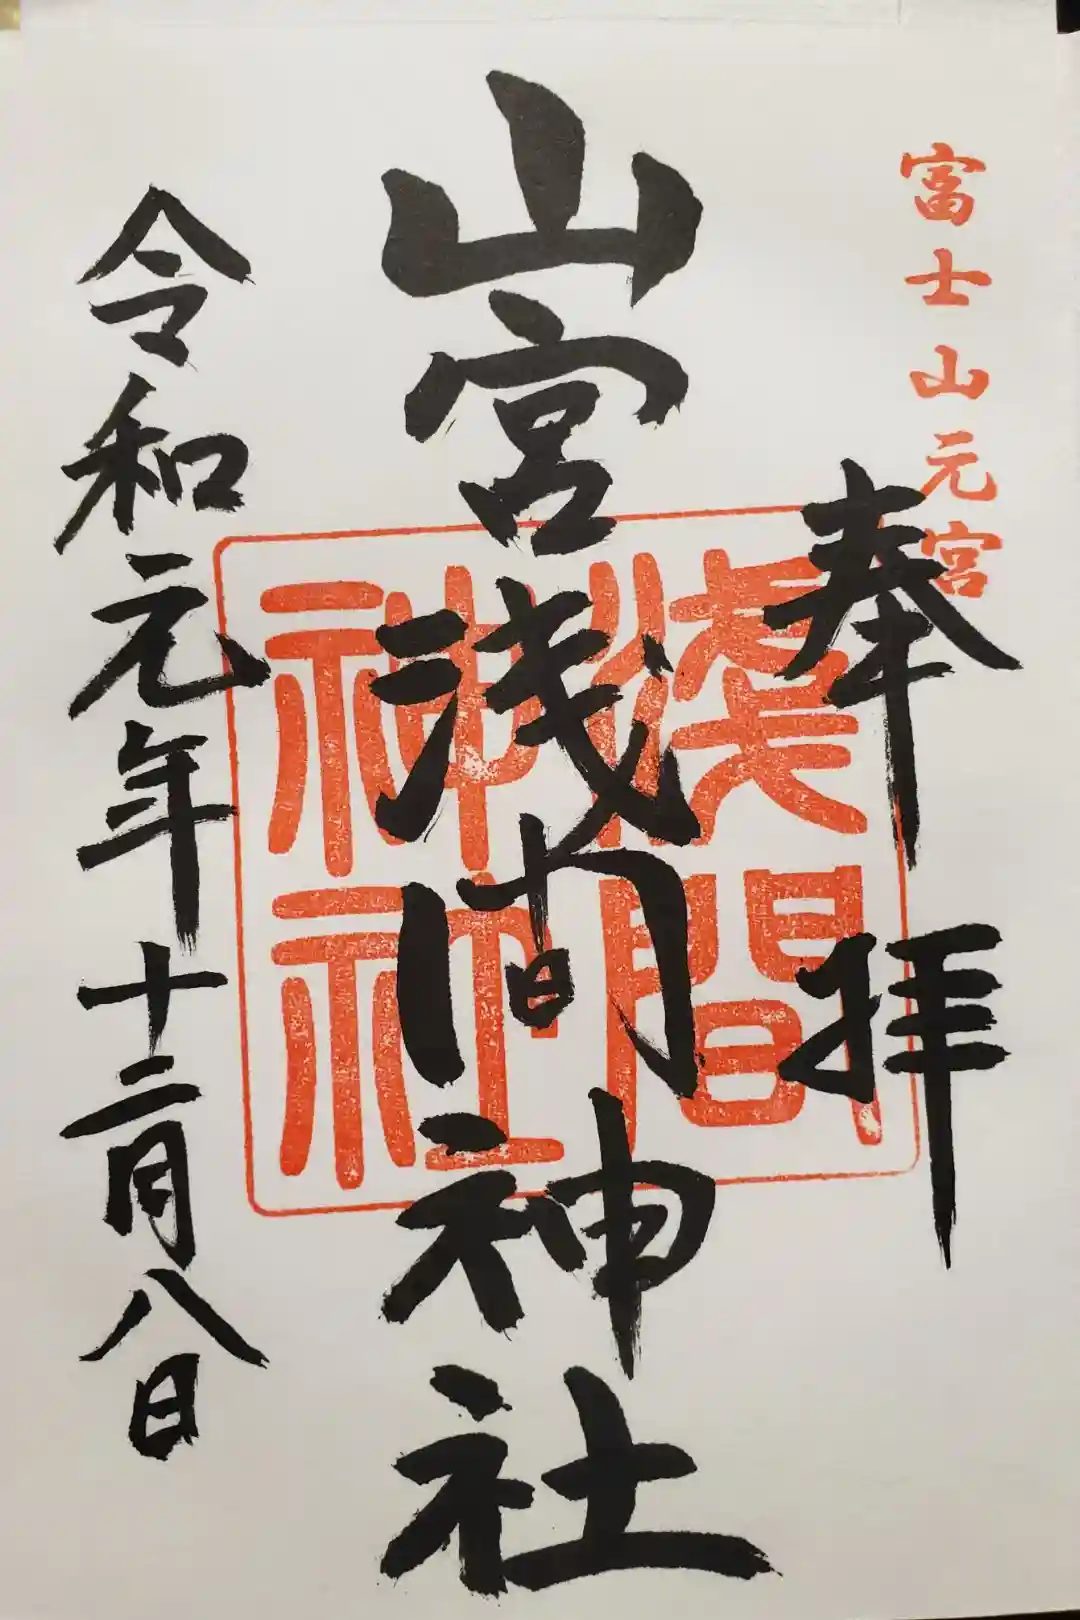 富士山元宮
奉拝
山宮浅間神社
淺間
神社
令和元年十二月八日